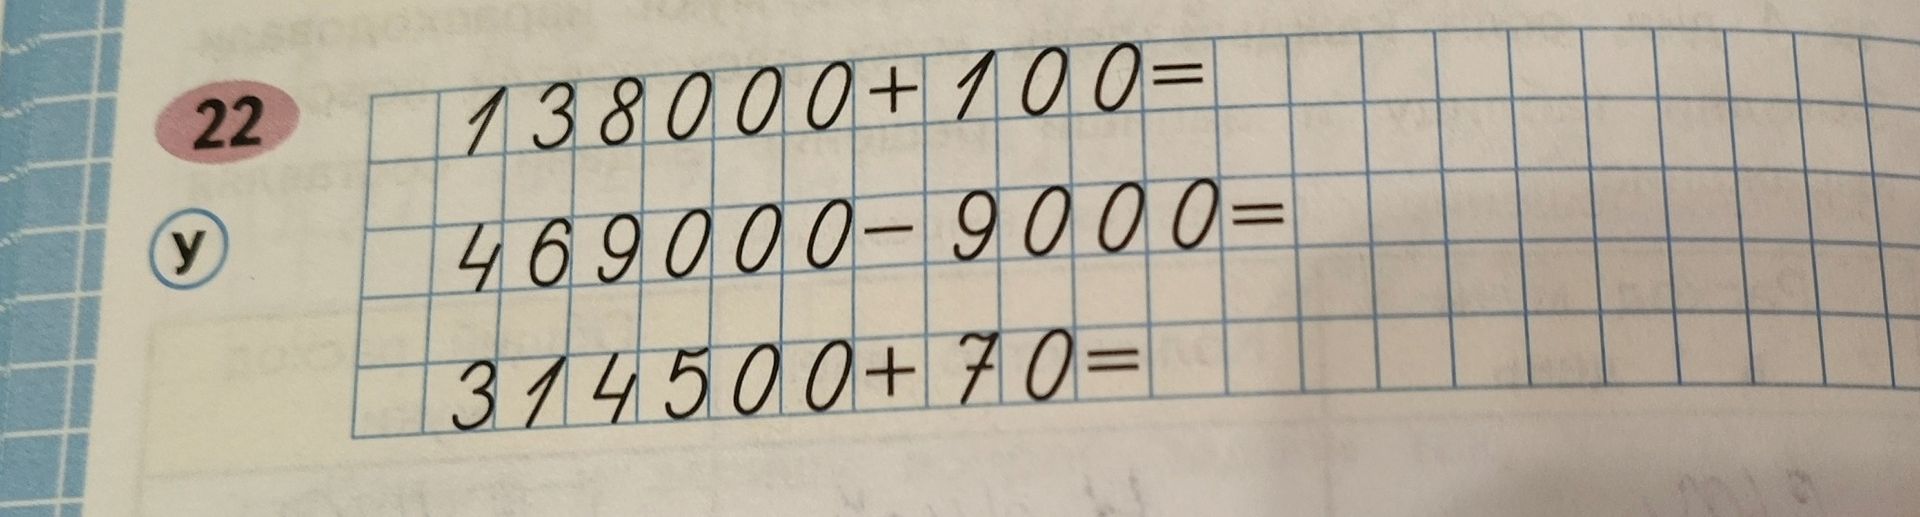 22
138000+100=
у
469000-9000=
314500+70=